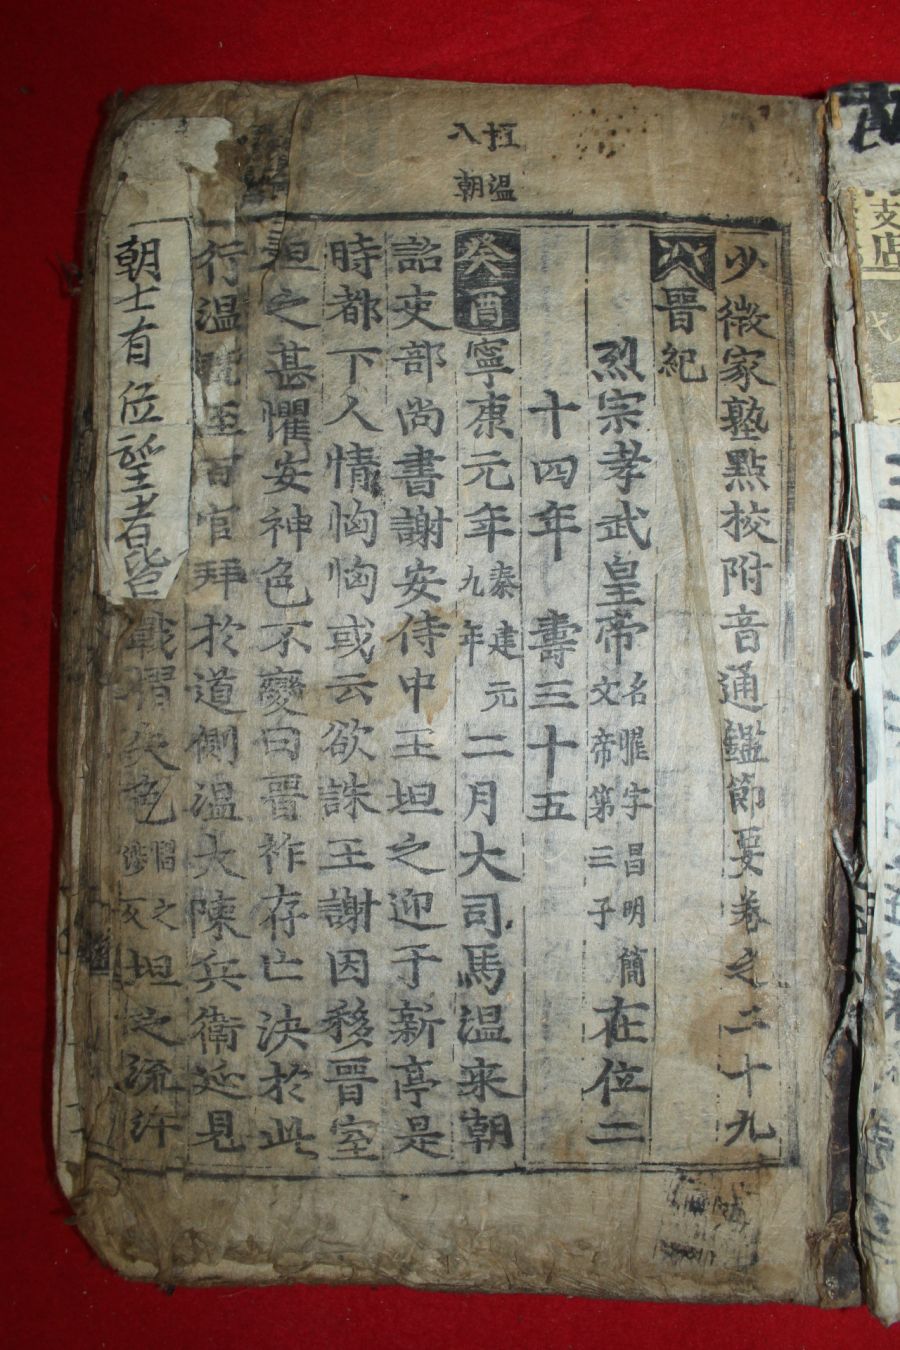 桓溫
入朝
少微家塾點校附音通鑑節要卷之二十九
晉紀
烈宗孝武皇帝名曜字昌明簡文帝第三子在位二
十四年 壽三十五
癸酉寧康元年秦建元九年二月大司馬溫来朝
詔吏部尙書謝安侍中王坦之迎于新亭是
時都下人情恟恟或云欲誅王謝因移晉室
坦之甚懼安神色不變曰晋祚存亡決於此
行溫旣至百官拜於道側溫大陳兵衛延見
朝士有位望者皆戰慴失色慴之涉反坦之流汗